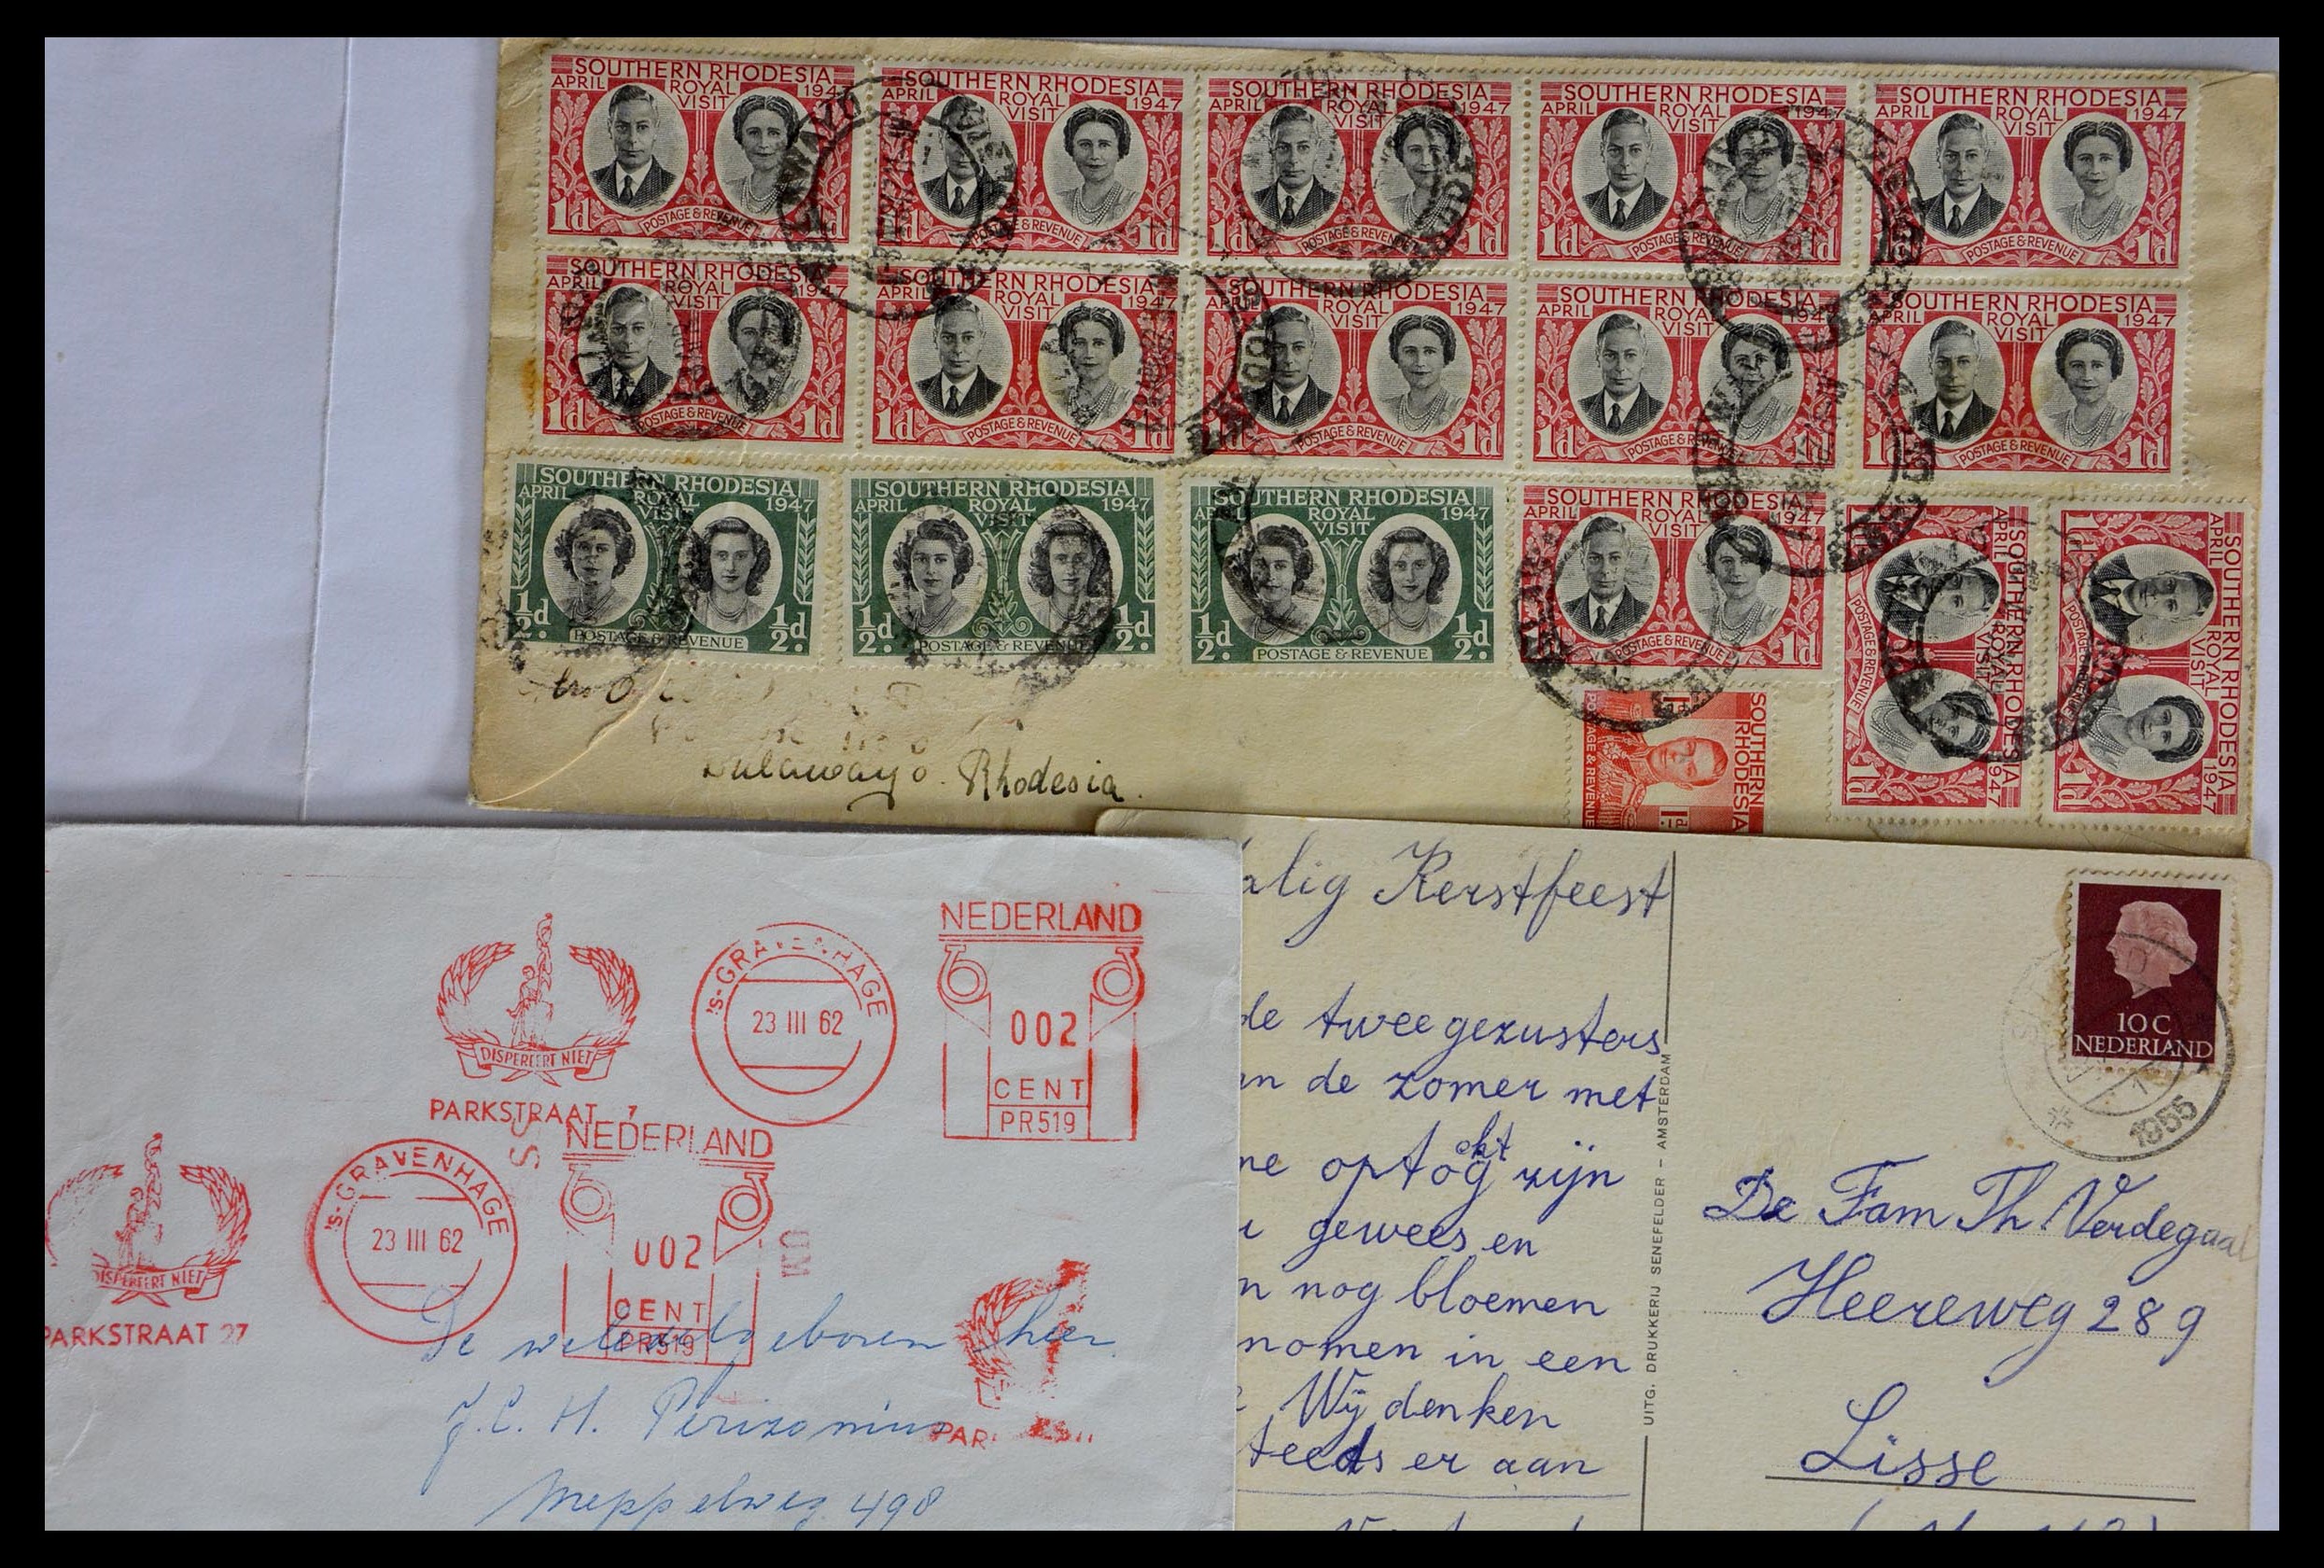 SOUTHERN RHODESIA SOUTHERN RHODESIA SOUTHERN RHODESIA SOUTHERN RHODESIA SOUTHERN RHODESIA
APRIL ROYAL VISIT 1947 APRIL ROYAL VISIT 1947 APRIL ROYAL VISIT 1947 APRIL ROYAL VISIT 1947 APRIL ROYAL VISIT 1947
1d POSTAGE & REVENUE 1d 1d POSTAGE & REVENUE 1d 1d POSTAGE & REVENUE 1d POSTAGE & REVENUE 1d 1d POSTAGE & REVENUE 1d
SOUTHERN RHODESIA SOUTHERN RHODESIA SOUTHERN RHODESIA SOUTHERN RHODESIA SOUTHERN RHODESIA
APRIL ROYAL VISIT 1947 APRIL ROYAL VISIT 1947 APRIL ROYAL VISIT 1947 APRIL ROYAL VISIT 1947 APRIL ROYAL VISIT 1947
1d POSTAGE & REVENUE 1d 1d POSTAGE & REVENUE 1d POSTAGE & REVENUE 1d 1d POSTAGE & REVENUE 1d 1d POSTAGE & REVENUE 1d
SOUTHERN RHODESIA SOUTHERN RHODESIA SOUTHERN RHODESIA SOUTHERN RHODESIA
APRIL ROYAL VISIT 1947 APRIL ROYAL VISIT 1947 APRIL ROYAL VISIT 1947 APRIL ROYAL VISIT 1947
½d. POSTAGE & REVENUE ½d. ½d. POSTAGE & REVENUE ½d. ½d. POSTAGE & REVENUE ½d. POSTAGE & REVENUE 1d
SOUTHERN RHODESIA
APRIL ROYAL VISIT 1947
POSTAGE & REVENUE
1d
SOUTHERN RHODESIA
APRIL ROYAL VISIT 1947
POSTAGE & REVENUE
1d 1d
SOUTHERN
RHODESIA
POSTAGE & REVENUE
1d 1d
Bulawayo. Rhodesia.
NEDERLAND
's-GRAVENHAGE
23 III 62
002
CENT
PR519
DISPEREERT NIET
PARKSTRAAT
NEDERLAND
's-GRAVENHAGE
23 III 62
002
CENT
PR519
DISPEREERT NIET
PARKSTRAAT 27
PAR
De weledelgeboren heer
J.C. H. Perizonius
Meppelweg 498
alig Kerstfeest
de twee gezusters
an de zomer met
ne optocht zijn
gewees en
n nog bloemen
nomen in een
Wij denken
teeds er aan
UITG. DRUKKERIJ SENEFELDER - AMSTERDAM
10 C
NEDERLAND
1955
De Fam Th Verdegaal
Heereweg 289
Lisse